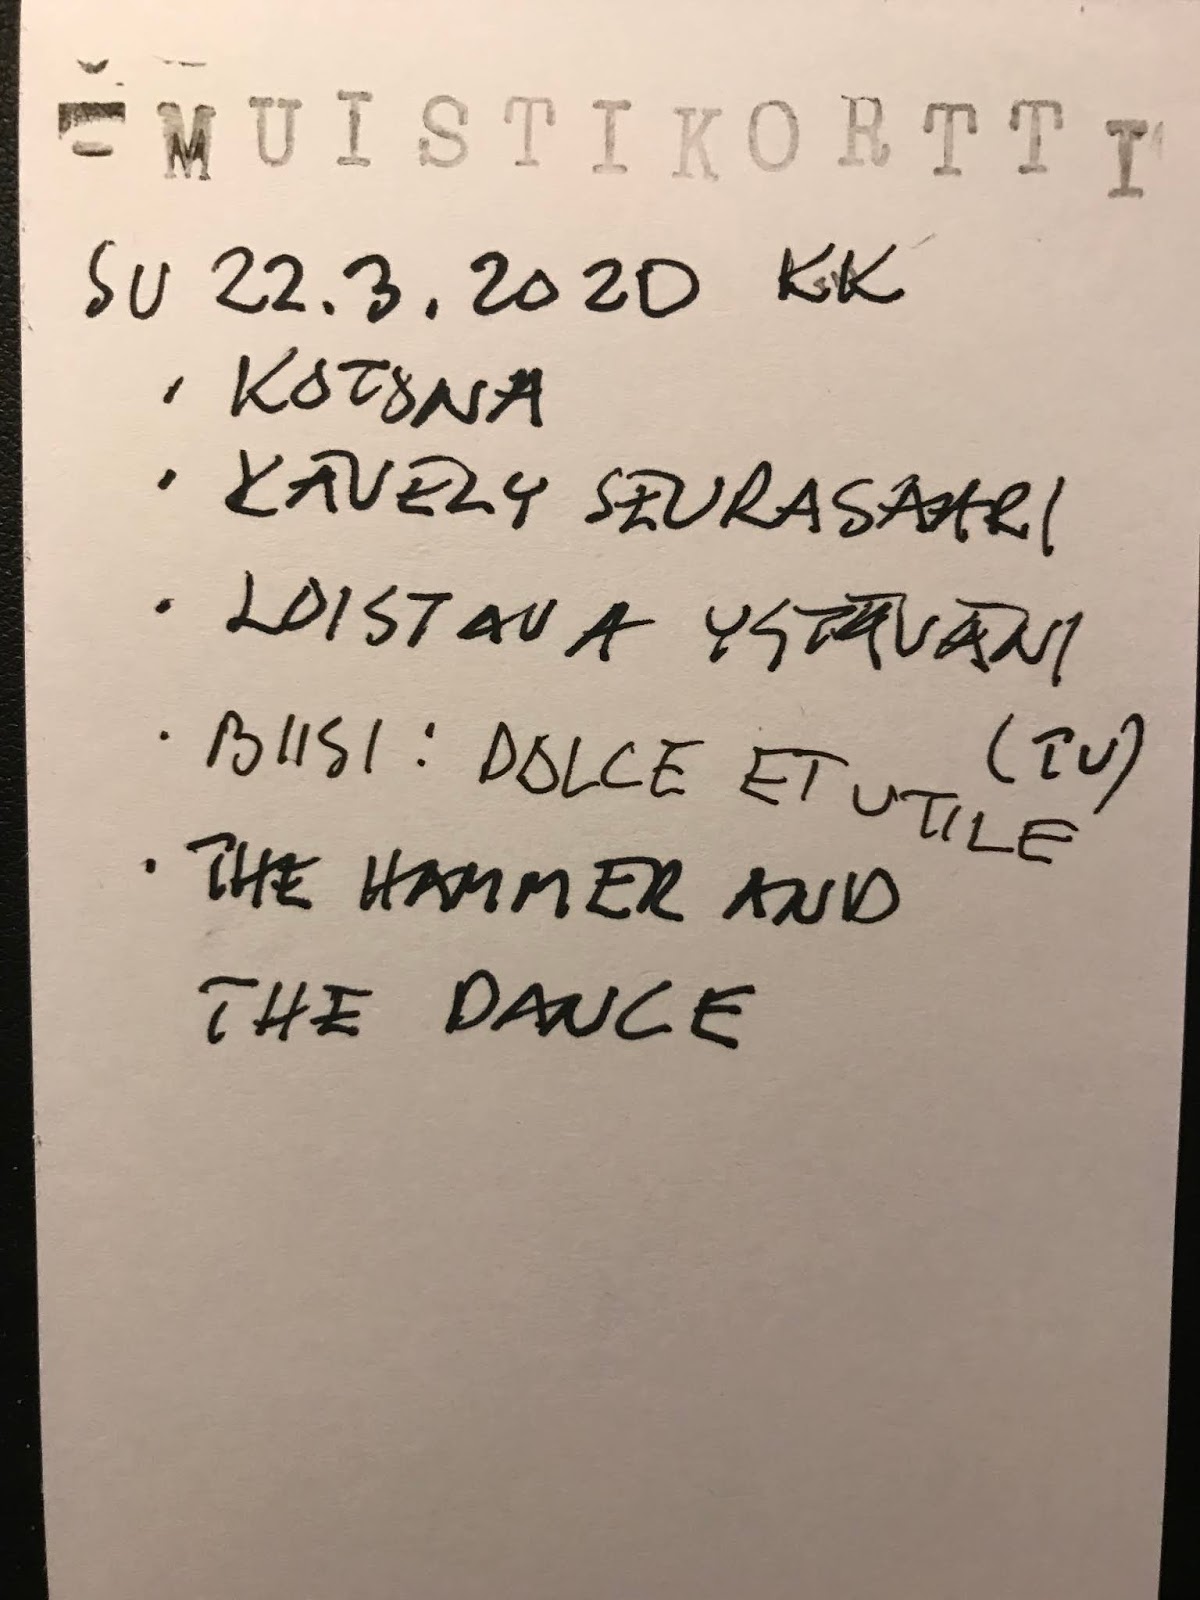 MUISTIKORTTI
SU 22.3.2020 KK
· KOTONA
· KÄVELY SEURASAARI
· LOISTAVA YSTÄVÄNI
· BIISI: DOLCE ET UTILE (TV)
· THE HAMMER AND
THE DANCE